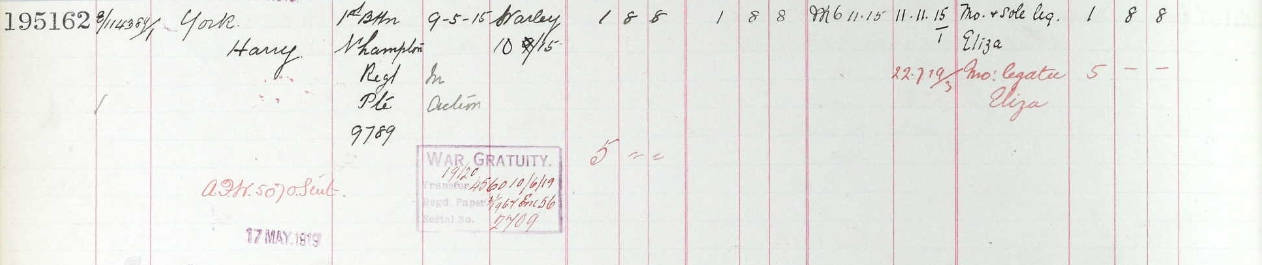 195162 E/114389/1 York. 1st Bttn 9-5-15 Warley 1 8 8 1 8 8 11.15 11.11.15 Mo. & Sole leg. 1 8 8
Harry N'hampton 10 /15 1 Eliza
Regt In 22.7.19/3 Mo: legatee 5 - -
Pte Action Eliza
9789
WAR GRATUITY. 5 = =
19/20
Transfer 4560 10/6/19
A.F.W. 5070 Sent. Regd. Paper 56
Serial No. 2709
17 MAY. 1919